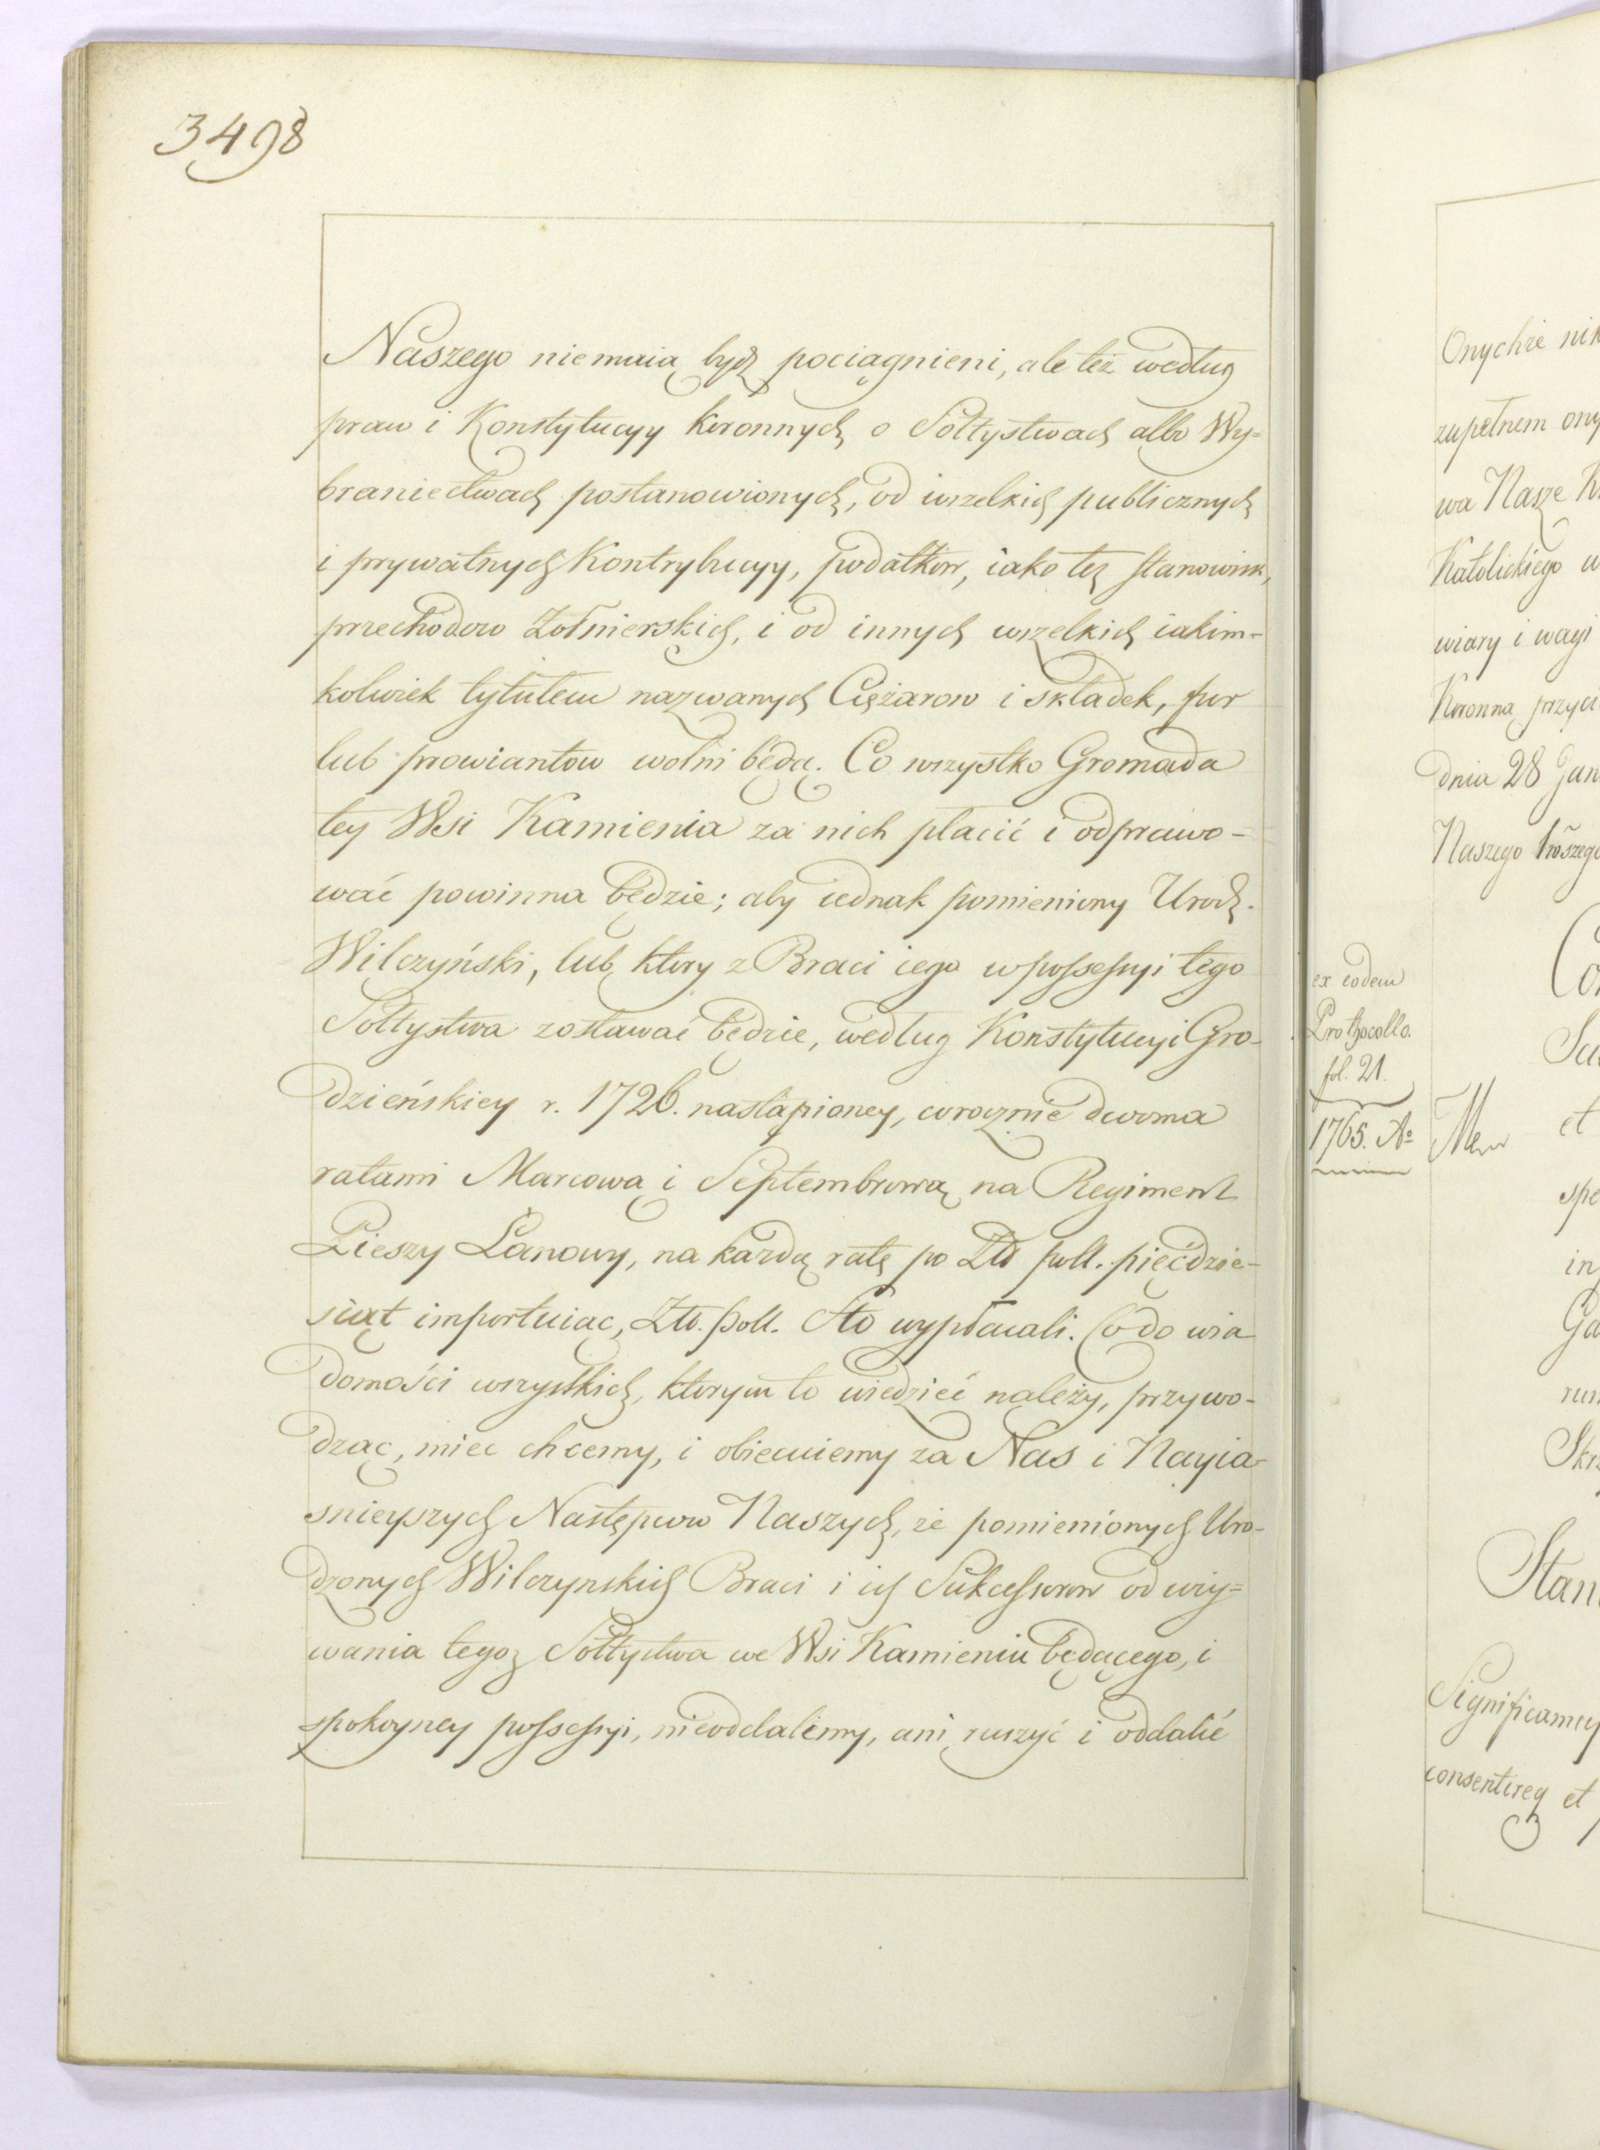 3498
Naszego niemaią bydz pociągnieni, ale też według
praw i Konstytucyy koronnych o Sołtystwach albo Wy=
braniectwach postanowionych, od wszelkich publicznych
i prywatnych Kontrybucyy, podatkow, iako tez stanowisk,
przechodow Zołnierskich, i od innych wszelkich iakim-
kolwiek tytułem nazwanych Ciężarow i składek, fur
lub prowiantow wolni będą. Co wszystko Gromada
tey Wsi Kamienia za nich płacić i odprawo-
wać powinna będzie; aby iednak pomieniony Urodz.
Wilczyński, lub ktory z Braci iego w possessyi tego
Sołtystwa zostawać będzie, według Konstytucyi Gro-
dzieńskiey r. 1726. nastąpioney, corocznie dwoma
ratami Marcową i Septembrową na Regiment
Pieszy Łanowy, na każdą ratę po Złł poll. pięćdzie-
siąt importuiąc, Złł. poll. Sto wypłacali. Co do wia
domości wszystkich, ktorym to wiedzieć należy, przywo-
dząc, miec chcemy, i obiecuiemy za Nas i Nayia-
snieyszych Następcow Naszych, że pomienionych Uro-
dzonych Wilczynskich Braci i ich Sukcessorow od uży=
wania tegoz Sołtystwa we Wsi Kamieniu będącego, i
spokoyney possessyi, nieoddalemy, ani ruszyć i oddalić
Onychże
zupełnem
wa Nasze
Katolickiego
wiary i wagi
Koronną
dnia 28 Jan
Naszego
ex eodem
Prothocollo.
fol. 21.
1765. Ao
et
Significamus
consentireq et